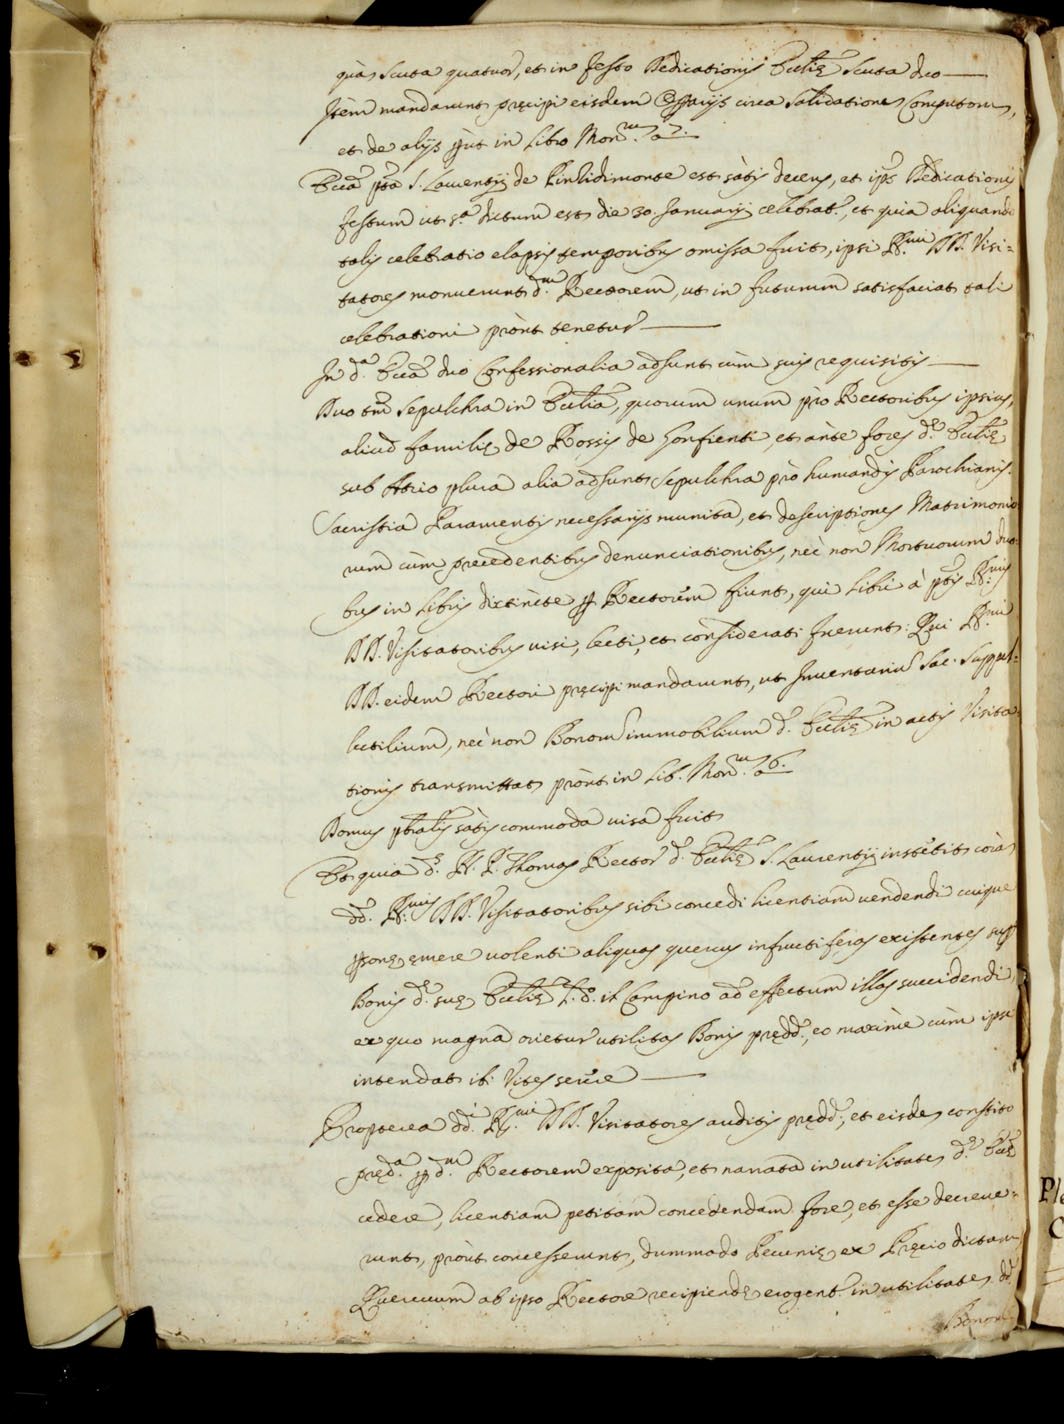 quas scuta quatuor, et in festo Dedicationis Eccliæ scuta duo —
Item mandarunt præcipi eisdem circa Solidationes Computorum,
et de alijs put in Libro Mon.m a 7.
Ecca pta S. Laurentij de Pinlidimonte est satis decens, et ips Dedicationis
festum ut s.a dictum est die 30. Januarij celebrat.r, et quia aliquando
talis celebratio elapsis temporibus omissa fuit, ipsi R.mi DD. Visi=
tatores monuerunt d.m Rectorem, ut in futurum satisfaciat tali
celebrationi proùt tenetur —
In d.a Ecca duo Confessionalia adsunt cùm suis requisitis —
Duo tm Sepulchra in Ecclia, quorum unum prò Rectoribus ipsius,
aliud familiæ de Rossis de Gonfienti, et ante fores d.æ Eccliæ
sub Atrio plura alia adsunt Sepulchra prò humandis Parochianis.
Sacristia Paramentis necessarijs munita, et descriptiones Matrimonio
rum cùm precedentibus denunciationibus, nec non Mortuorum duo=
bus in Libris distincte p Rectorem fiunt, qui Libri à ptis R.mis
DD. Visitatoribus visi, lecti, et considerati fuerunt: Qui R.mi
DD. eidem Rectori præcipi mandarunt, ut Inventariũ Sac. Suppel=
lectilium, nec non Bonorũ immobilium d.æ Eccliæ in actis Visita=
tionis transmittat proùt in Lib. Mon.m a 6.
Domus pbtalis satis commoda visa fuit
Et quia d.s R. P. Thomas Rector d.æ Eccliæ S. Laurentij institit corã
dd. R.mis DD. Visitatoribus sibi concedi licentiam vendendi cuique
psonæ emere volenti aliquas quercus infructiferas existentes sup
Bonis d.æ suæ Eccliæ l.d. il Campino ad effectum illas succidendi,
ex quo magna orietur utilitas Bonis prædd., eo maximè cùm ipse
intendat ibi Vites serere —
Propterea dd.i R.mi DD. Visitatores auditis prædd., et eisdem constito
præd.a p d.m Rectorem exposita, et narrata in utilitatẽ d.æ Eccæ
cedere, licentiam petitam concedendam fore, et esse decreve=
runt, proùt concesserunt, dummodo Pecuniæ ex Præcio dictarum
Quercuum ab ipso Rectore recipiendæ erogent.r in utilitatẽ dd.
Bonorũ